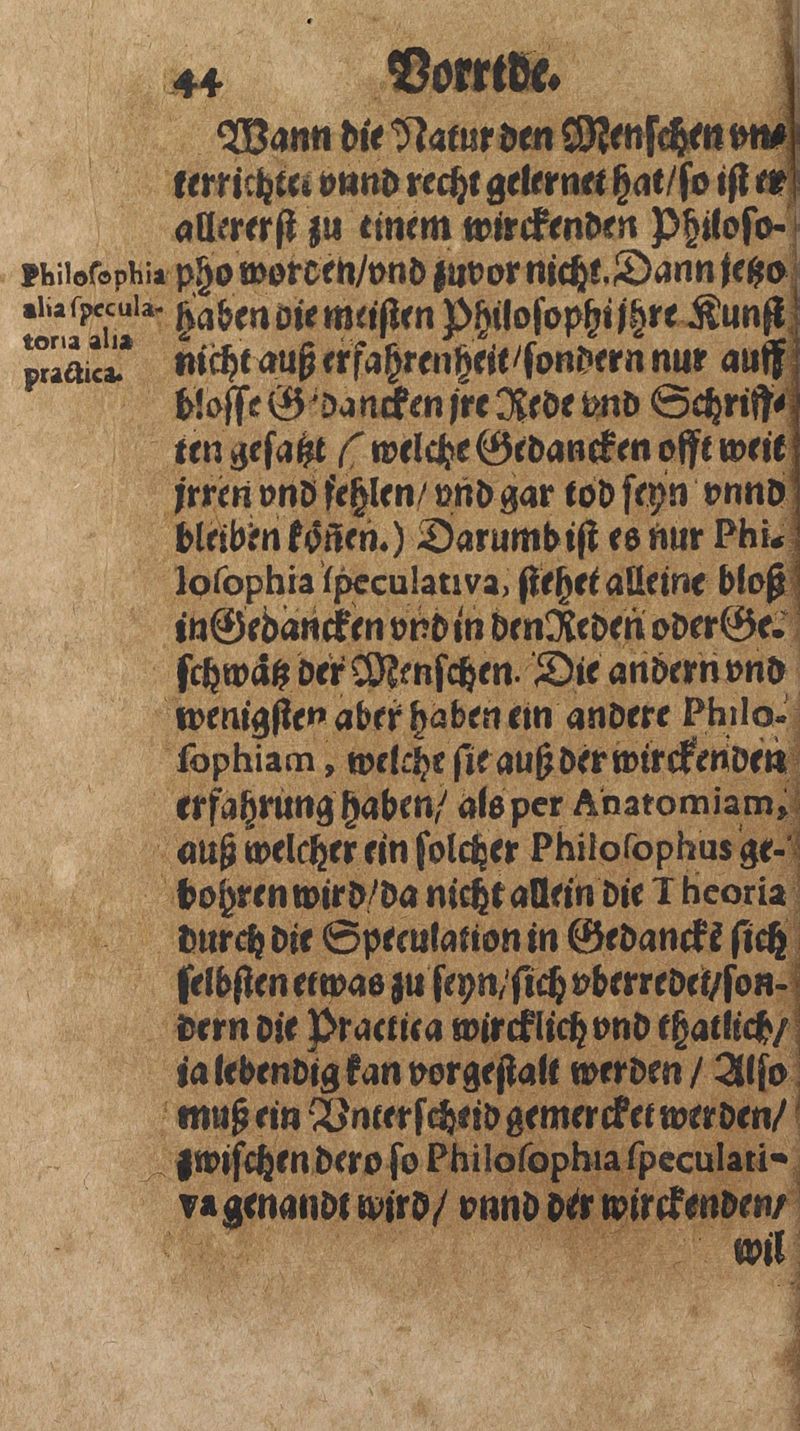 44 Vorrede.
Wann die Natur den Menschen vn⸗
terrichtet vnnd recht gelernet hat/so ist er
allererst zu einem wirckenden Philoso-
pho worden/vnd zuvor nicht. Dann jetzo
haben die meisten Philosophi jhre Kunst
nicht auß erfahrenheit/sondern nur auff
blosse G'dancken jre Rede vnd Schriff⸗
ten gesatzt ( welche Gedancken offt weit
jrren vnd fehlen/ vnd gar tod seyn vnnd
bleiben koͤñen.) Darumb ist es nur Phi-
losophia speculativa, stehet alleine bloß
in Gedancken vnd in den Reden oder Ge-
schwaͤtz der Menschen. Die andern vnd
wenigsten aber haben ein andere Philo-
sophiam, welche sie auß der wirckenden
erfahrung haben/ als per Anatomiam,
auß welcher ein solcher Philosophus ge-
bohren wird/da nicht allein die Theoria
durch die Speculation in Gedanckẽ sich
selbsten etwas zu seyn/sich vberredet/son-
dern die Practica wircklich vnd thatlich/
ia lebendig kan vorgestalt werden / Also
muß ein Vnterscheid gemercket werden/
zwischen dero so Philosophia speculati-
va genandt wird/ vnnd der wirckenden/
wil
Philosophia
alia specula-
toria alia
practica.